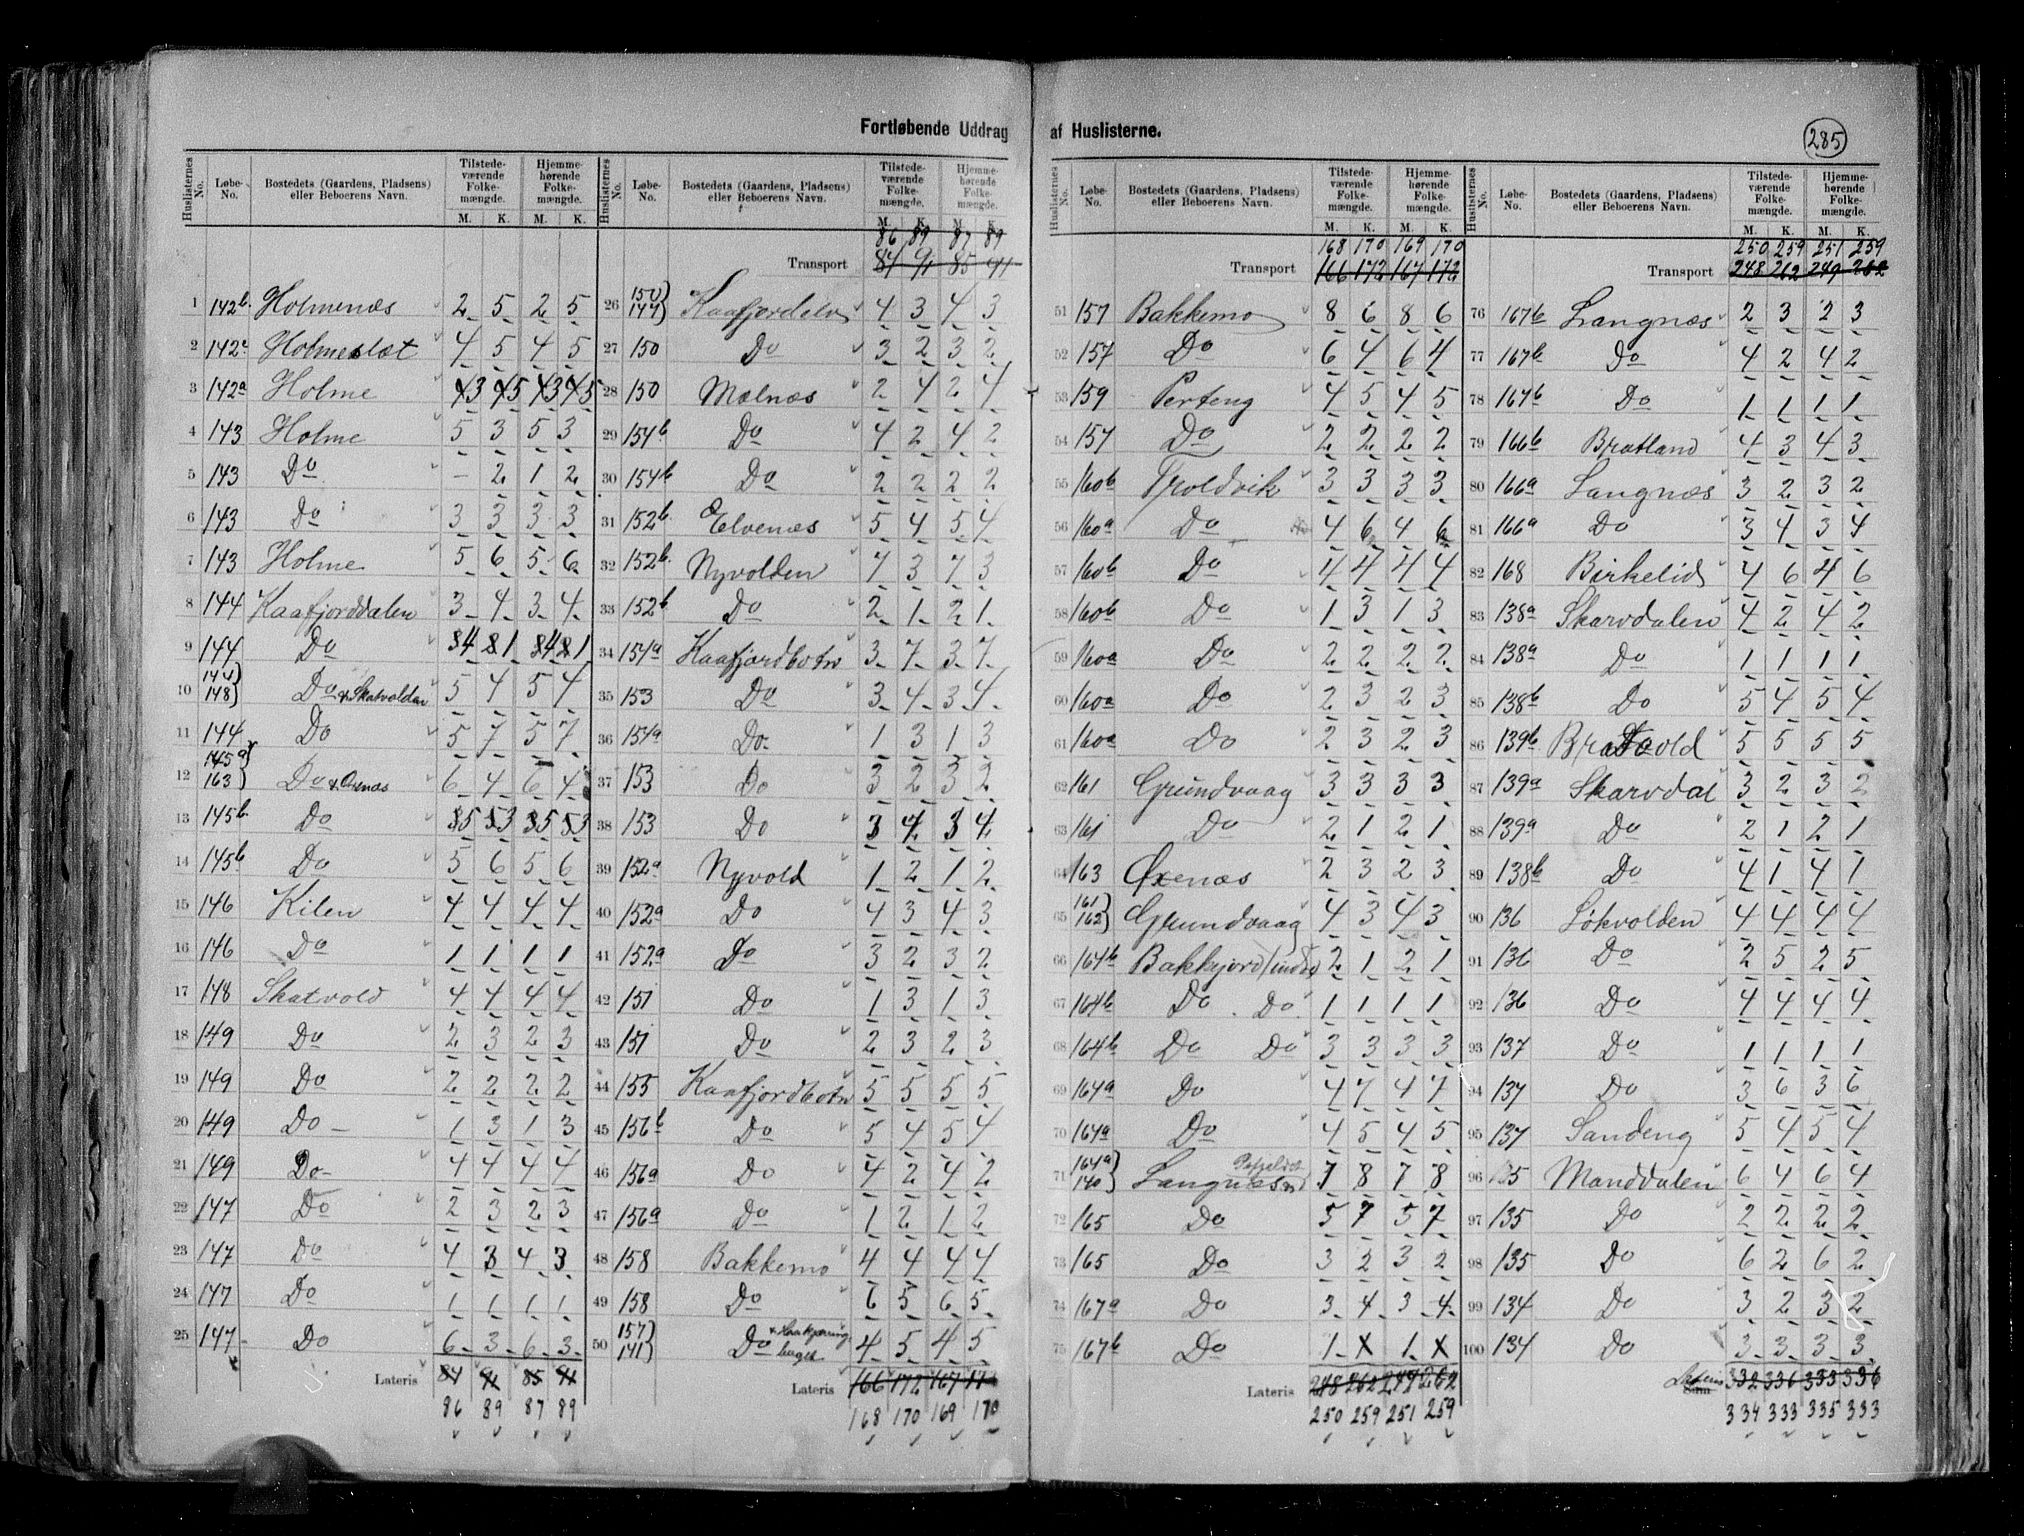 Fortløbende Uddrag af Huslisterne.
285
Huslisternes No. | Løbe-No. | Bostedets (Gaardens, Pladsens) eller Beboerens Navn. | Tilstedeværende Folkemængde. M. K. | Hjemmehørende Folkemængde. M. K.
1 142b Holmenæs 2 5 2 5
2 142c Holmeslæt 4 5 4 5
3 142a Holme 3 5 3 5
4 143 Holme 5 3 5 3
5 143 Do – 2 1 2
6 143 Do 3 3 3 3
7 143 Holme 5 6 5 6
8 144 Kaafjorddalen 3 4 3 4
9 144 Do 4 1 4 1
10 144) 148) Do & Skatvolden 5 4 5 4
11 144 Do 5 7 5 7
12 145a) 163) Do & Oxenæs 6 4 6 4
13 145b Do 5 3 5 3
14 145b Do 5 6 5 6
15 146 Kilen 4 4 4 4
16 146 Do 1 1 1 1
17 148 Skatvold 4 4 4 4
18 149 Do 2 3 2 3
19 149 Do 2 2 2 2
20 149 Do 1 3 1 3
21 149 Do 4 4 4 4
22 147 Do 2 3 2 3
23 147 Do 4 3 4 3
24 147 Do 1 1 1 1
25 147 Do 6 3 6 3
Lateris 84 91 85 91
86 89 87 89
Huslisternes No. | Løbe-No. | Bostedets (Gaardens, Pladsens) eller Beboerens Navn. | Tilstedeværende Folkemængde. M. K. | Hjemmehørende Folkemængde. M. K.
86 89 87 89
Transport 84 91 85 91
26 150) 144) Kaafjordelv 4 3 4 3
27 150 Do 3 2 3 2
28 150 Mælnæs 2 4 2 4
29 154b Do 4 2 4 2
30 154b Do 2 2 2 2
31 152b Elvenæs 5 4 5 4
32 152b Nyvolden 7 3 7 3
33 152b Do 2 1 2 1
34 154a Kaafjordbotn 3 7 3 7
35 153 Do 3 4 3 4
36 154a Do 1 3 1 3
37 153 Do 3 2 3 2
38 153 Do 3 4 3 4
39 152a Nyvold 1 2 1 2
40 152a Do 4 3 4 3
41 152a Do 3 2 3 2
42 151 Do 1 3 1 3
43 151 Do 2 3 2 3
44 155 Kaafjordbotn 5 5 5 5
45 156b Do 5 4 5 4
46 156a Do 4 2 4 2
47 156a Do 1 2 1 2
48 158 Bakkemo 4 4 4 4
49 158 Do 6 5 6 5
50 157) 141) Do 4 5 4 5
Lateris 166 172 167 172
168 170 169 170
Huslisternes No. | Løbe-No. | Bostedets (Gaardens, Pladsens) eller Beboerens Navn. | Tilstedeværende Folkemængde. M. K. | Hjemmehørende Folkemængde. M. K.
168 170 169 170
Transport 166 172 167 172
51 157 Bakkemo 8 6 8 6
52 157 Do 6 4 6 4
53 159 Perteng 4 5 4 5
54 157 Do 2 2 2 2
55 160b Troldvik 3 3 3 3
56 160a Do 4 6 4 6
57 160b Do 4 4 4 4
58 160b Do 1 3 1 3
59 160a Do 2 2 2 2
60 160a Do 2 3 2 3
61 160a Do 2 3 2 3
62 161 Grundvaag 3 3 3 3
63 161 Do 2 1 2 1
64 163 Oxenæs 2 3 2 3
65 161) 162) Grundvaag 4 3 4 3
66 164b Bakkejord 2 1 2 1
67 164b Do Do 1 1 1 1
68 164b Do Do 3 3 3 3
69 164a Do 4 7 4 7
70 164a Do 4 5 4 5
71 164a) 140) Langnæs 7 8 7 8
72 165 Do 5 7 5 7
73 165 Do 3 2 3 2
74 167a Do 3 4 3 4
75 167b Do 1 x 1 x
Lateris 248 262 249 262
250 259 251 259
Huslisternes No. | Løbe-No. | Bostedets (Gaardens, Pladsens) eller Beboerens Navn. | Tilstedeværende Folkemængde. M. K. | Hjemmehørende Folkemængde. M. K.
250 259 251 259
Transport 248 262 249 262
76 167b Langnæs 2 3 2 3
77 167b Do 4 2 4 2
78 167b Do 1 1 1 1
79 166b Bratland 4 3 4 3
80 166a Langnæs 3 2 3 2
81 166a Do 3 4 3 4
82 168 Birkelid 4 6 4 6
83 138a Skarvdalen 4 2 4 2
84 138a Do 1 1 1 1
85 138b Do 5 4 5 4
86 139b Bratvold 5 5 5 5
87 139a Skarvdal 3 2 3 2
88 139a Do 2 1 2 1
89 138b Do 4 1 4 1
90 136 Løkvolden 4 4 4 4
91 136 Do 2 5 2 5
92 136 Do 4 4 4 4
93 137 Do 1 1 1 1
94 137 Do 3 6 3 6
95 137 Sandeng 5 4 5 4
96 135 Manddalen 6 4 6 4
97 135 Do 2 2 2 2
98 135 Do 6 2 6 2
99 134 Do 3 2 3 2
100 134 Do 3 3 3 3
Lateris Sum 332 336 333 336
334 333 335 333